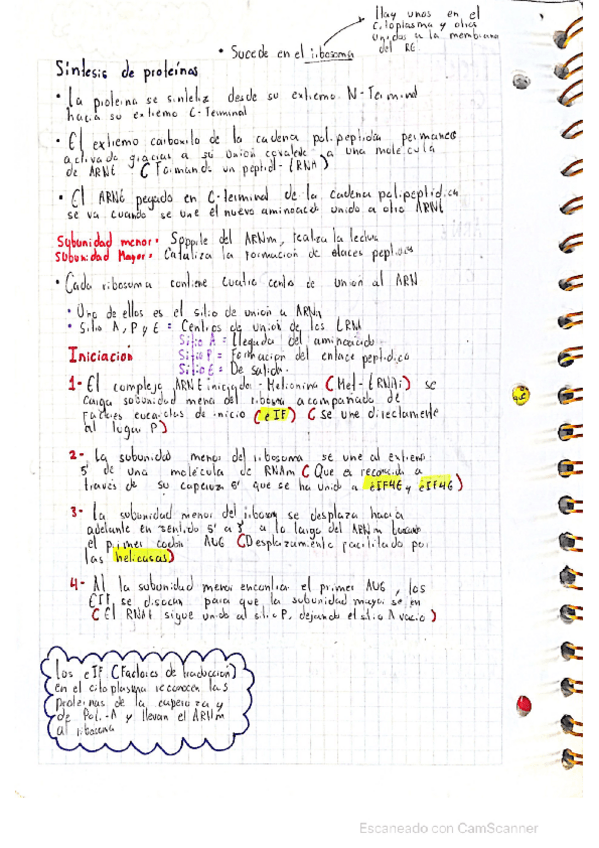 Hay unos en el
citoplasma y otros
unidos a la membrana
del RE.
• Sucede en el ribosoma
Síntesis de proteínas
• La proteína se sintetiza desde su extremo N-Terminal
hacia su extremo C-Terminal
• El extremo carboxilo de la cadena polipeptídica permanece
activada gracias a su unión covalente a una molécula
de ARNt (Formando un peptidil-tRNA)
• El ARNt pegado en C-terminal de la cadena polipeptídica
se va cuando se une el nuevo aminoácido unido a otro ARNt
Subunidad menor: Soporte del ARNm, realiza la lectura
Subunidad Mayor: Cataliza la formación de enlaces peptídicos
• Cada ribosoma contiene cuatro sitios de unión al ARN
• Uno de ellos es el sitio de unión a ARNm
• Sitio A, P y E = Centros de unión de los tRNA
Sitio A = Llegada del aminoácido
Sitio P = Formación del enlace peptídico
Sitio E = De salida
Iniciación
1- El complejo ARNt iniciador - Metionina (Met-tRNAi) se
carga subunidad menor del ribosoma acompañado de
factores eucariotas de inicio (eIF) (se une directamente
al lugar P)
2- La subunidad menor del ribosoma se une al extremo
5' de una molécula de RNAm (Que es reconocida a
través de su caperuza 5' que se ha unido a eIF4E y eIF4G)
3- La subunidad menor del ribosoma se desplaza hacia
adelante en sentido 5' a 3' a lo largo del ARNm buscando
el primer codón AUG (Desplazamiento facilitado por
las helicasas)
4- Al la subunidad menor encontrar el primer AUG, los
eIF se disocian para que la subunidad mayor se
(El RNAt sigue unido al sitio P, dejando el sitio A vacío)
Los eIF (Factores de traducción)
en el citoplasma reconocen las
proteínas de la caperuza y
de Pol.-A y llevan el ARNm
al ribosoma
Escaneado con CamScanner